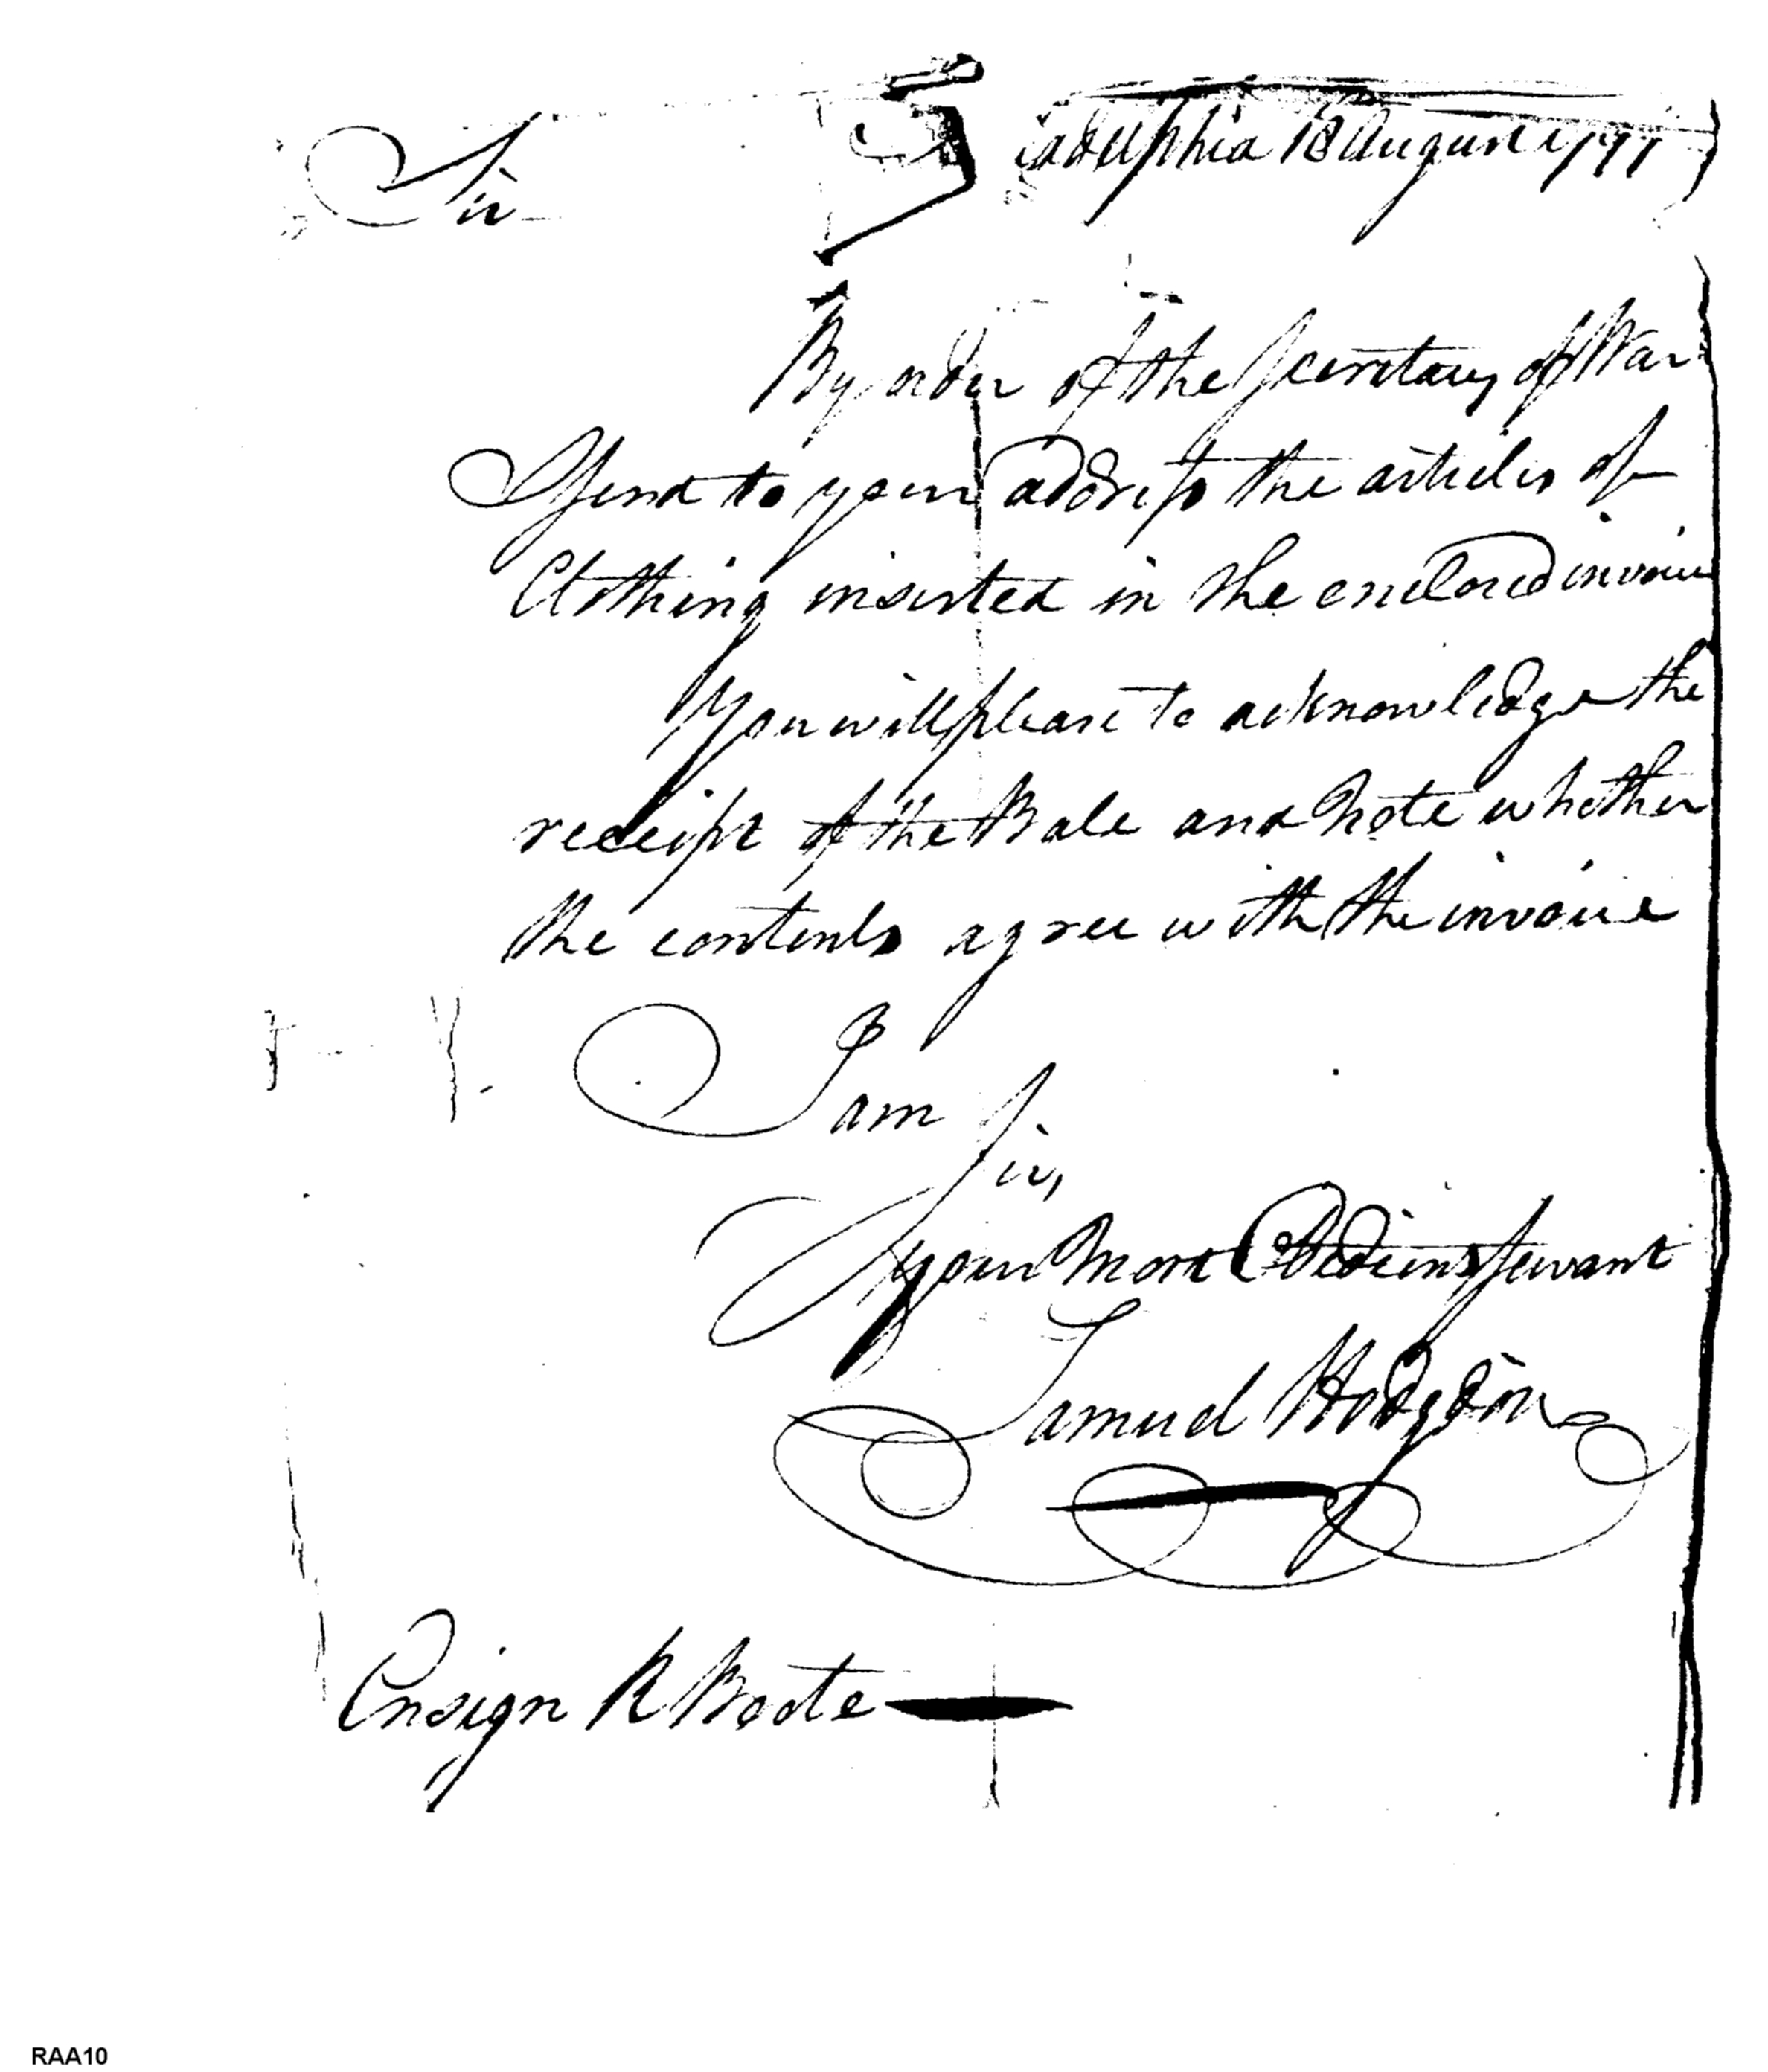 Sir
iladelphia 18 August 1797
By order of the Secretary of War
I send to your address the articles of
Clothing inserted in the enclosed invoice
You will please to acknowledge the
receipt of the Bale and Note whether
the contents agree with the invoice
I am
Sir,
your most Obedient servant
Samuel Hodgdon
Ensign R Boote
RAA10